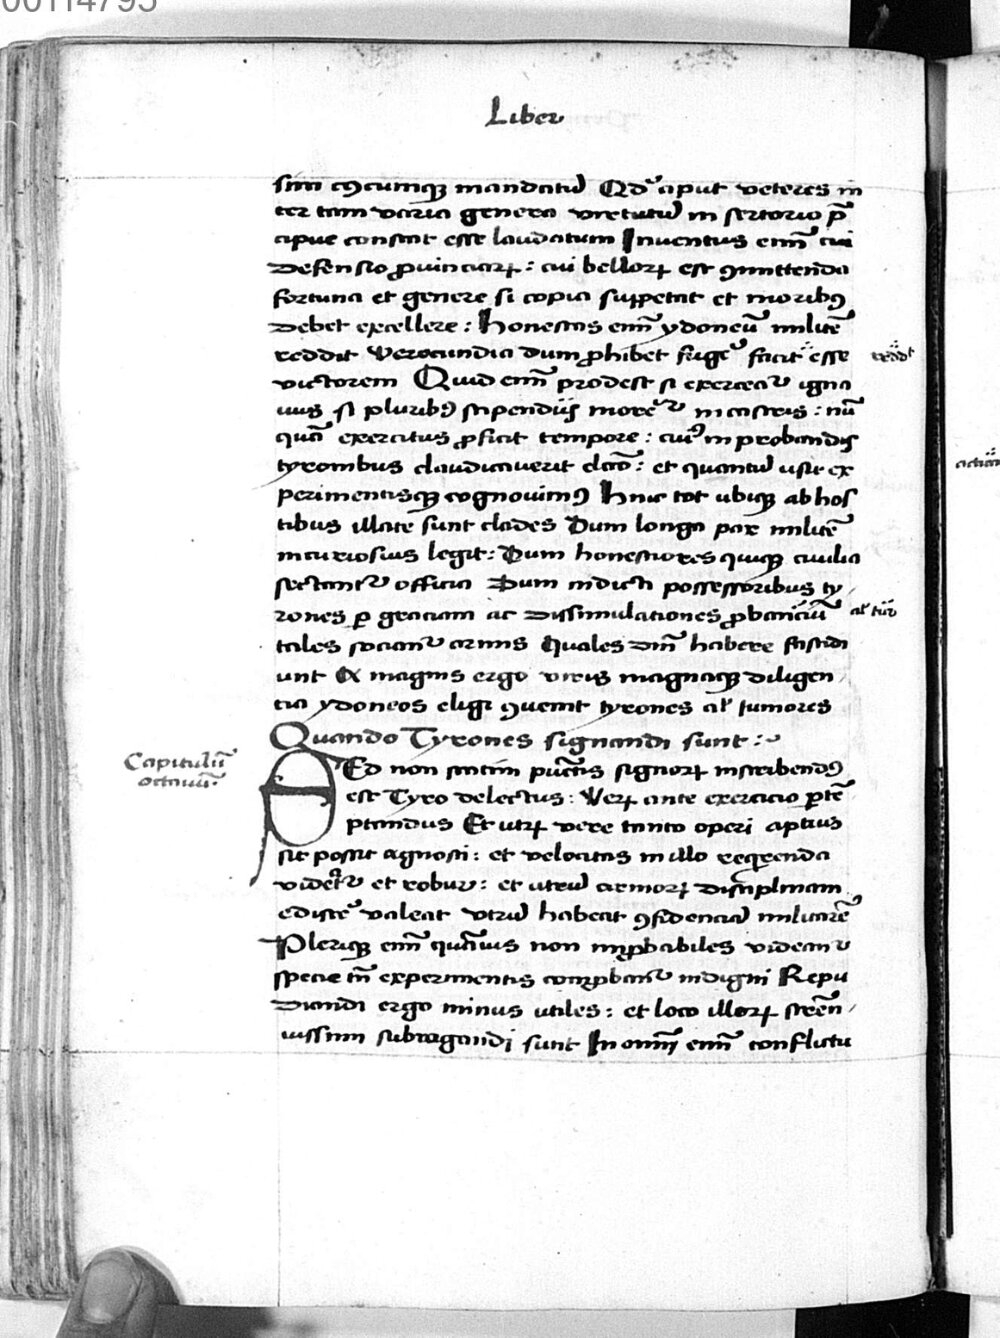 00114795
Liber
simi cuicumqꝫ mandatū Qd̄ aput veteres in
ter tam varia genera virtutū in sertorio p̄
cipue constat esse laudatum Inuentus enī cui
Defensio ꝓuinciarꝝ : cui bellorꝝ est ꝯmittenda
fortuna et genere si copia suppetat et moribꝰ
Debet excellere : Honestas enī ydoneū militē
reddit Verecundia dum ꝓhibet fugē facit esse
reddt
victorem Quid enī prodest si exerceatᷣ igna
uus si pluribꝰ stipendijs moretᷣ in castris : nū
quā exercitus ꝓficit tempore : cuiꝰ in probandis
tyronibus claudicauerit elcō : et quantū usu ex
perimentisqꝫ cognouimꝰ Hinc tot ubiqꝫ ab hos
tibus illate sunt clades Dum longa pax militē
incuriosius legit : Dum honestiores quiqꝫ ciuilia
sectantᷣ officia Dum indicti possessoribus ty
rones ꝑ graciam ac dissimulationes ꝓbanciū
al' tur
tales sociantᷣ armis Quales dnī habere fastidi
unt A magnis ergo viris magnaqꝫ diligen
cia ydoneos eligi ꝯuenit tyrones al' iuniores
Quando Tyrones signandi sunt :
Capitulū
octauū
SEd non statim pūctis signorꝝ inscribendꝰ
est Tyro delectus : Verꝝ ante exercicio ꝑtē
ptandus Et utrꝝ vere tanto operi aptus
sit possit agnosci : et velocitas in illo reqꝛenda
videtᷣ et robur : et utrū armorꝝ disciplinam
ediscē valeat vtrū habeat ꝯfidenciā militarē
Pleriqꝫ enī quāuis non inꝓbabiles videantᷣ
specie tn̄ experimentis comꝓbantᷣ indigni Repu
diandi ergo minus utiles : et loco illorꝝ strēn
uissimi subrogandi sunt In omī enī conflictu